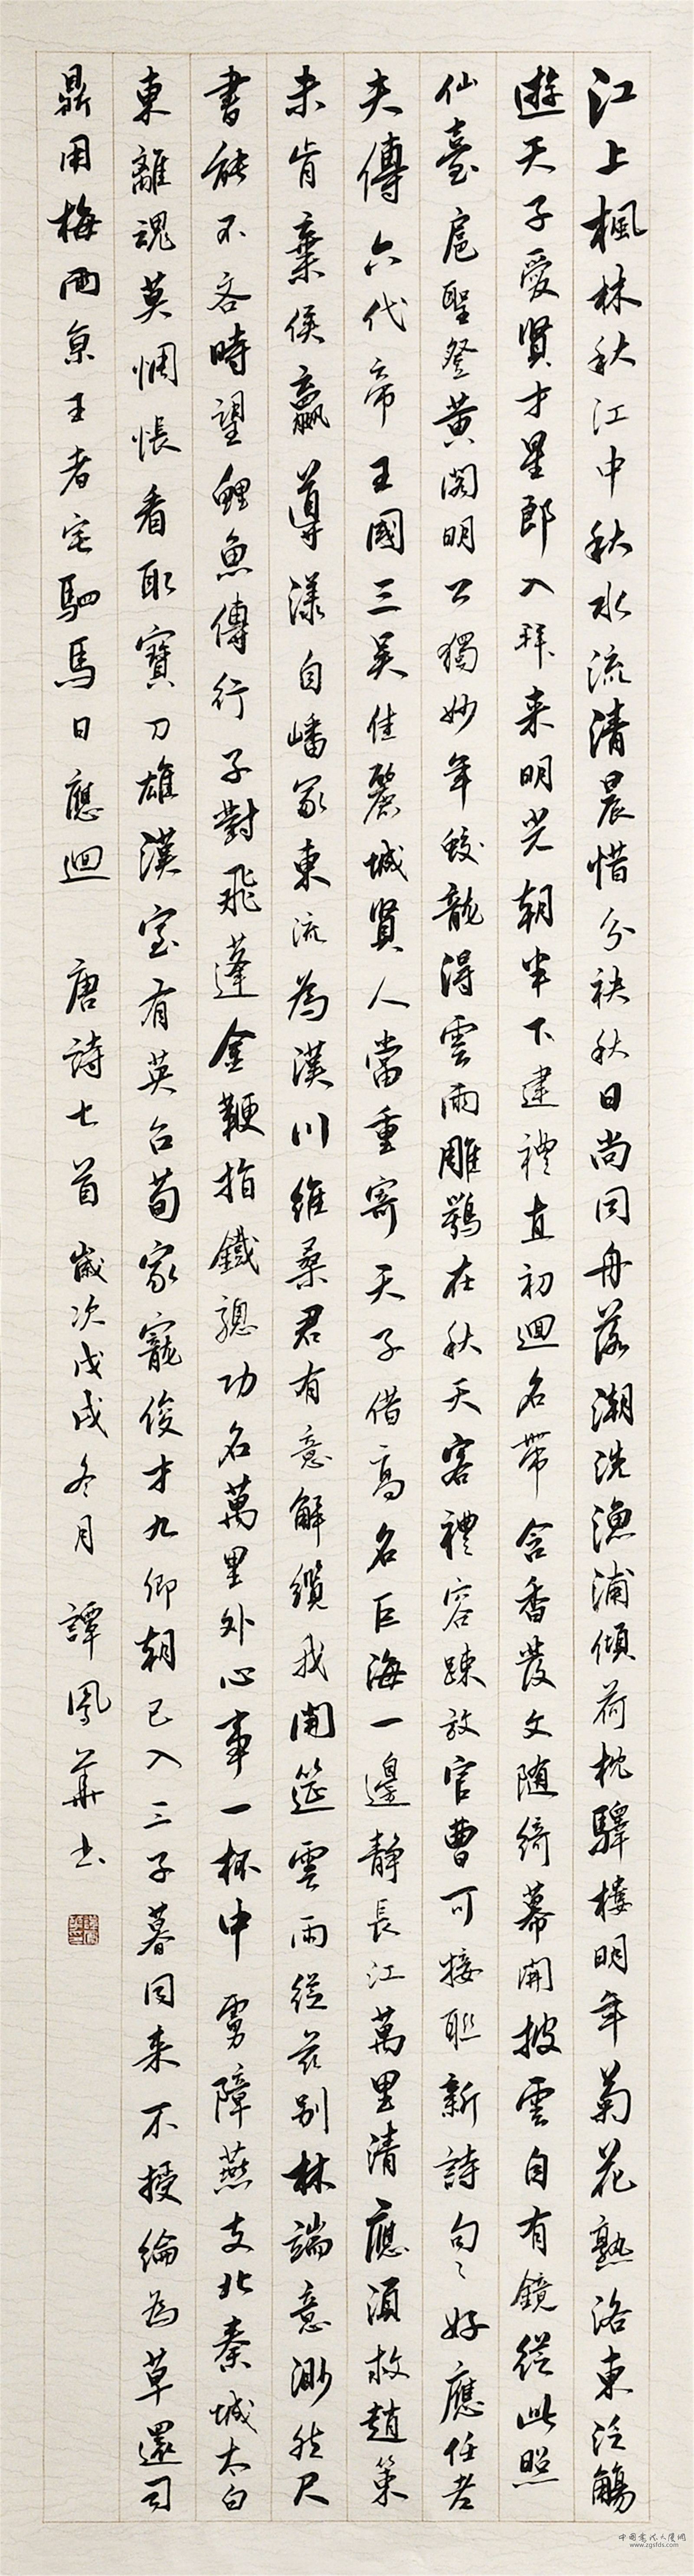 江上楓林秋江中秋水流清晨惜分袂秋日尚同舟落潮洗漁浦傾荷枕驛樓明年菊花熟洛東泛觴
遊天子愛賢才星郎入拜来明光朝半下建禮直初迴名帶含香發文随綺幕開披雲自有鏡從此照
仙臺扈聖登黃閣明公獨妙年蛟龍得雲雨雕鶚在秋天客禮容踈放官曹可接聯新詩句々好應任老
夫傳六代帝王國三吳佳麗城賢人當重寄天子借高名巨海一邊静長江萬里清應須救趙策
未肯棄侯嬴導漾自嶓冢東流為漢川維桑君有意解纜我開筵雲雨從茲別林端意渺然尺
書能不吝時望鯉魚傳行子對飛蓬金鞭指鐵驄功名萬里外心事一杯中虜障燕支北秦城太白
東離魂莫惆悵看取寶刀雄漢室有英臣荀家寵俊才九卿朝已入三子暮同来不授綸為草還司
鼎用梅両京王者宅駟馬日應迴 唐詩七首 歲次戊戌冬月 譚鳳華书
中國書法大廈網
www.zgsfds.com